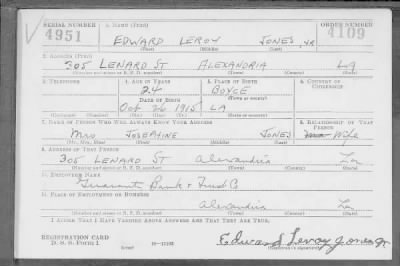 SERIAL NUMBER
4951
1. NAME (Print)
EDWARD LEROY JONES, JR
(First) (Middle) (Last)
ORDER NUMBER
4109
2. ADDRESS (Print)
305 LENARD ST ALEXANDRIA LA
(Number and street or R. F. D. number) (Town) (County) (State)
3. TELEPHONE
4. AGE IN YEARS
24
5. PLACE OF BIRTH
BOYCE
(Town or county)
6. COUNTRY OF CITIZENSHIP
DATE OF BIRTH
Oct 26 1915
(Mo.) (Day) (Yr.)
LA
(State or country)
7. NAME OF PERSON WHO WILL ALWAYS KNOW YOUR ADDRESS
Mrs JOSEPHINE JONES
(Mr., Mrs., Miss) (First) (Middle) (Last)
8. RELATIONSHIP OF THAT PERSON
Wife
9. ADDRESS OF THAT PERSON
305 LENARD ST Alexandria La
(Number and street or R. F. D. number) (Town) (County) (State)
10. EMPLOYER'S NAME
Guaranty Bank & Trust Co
11. PLACE OF EMPLOYMENT OR BUSINESS
Alexandria La
(Number and street or R. F. D. number) (Town) (County) (State)
I AFFIRM THAT I HAVE VERIFIED ABOVE ANSWERS AND THAT THEY ARE TRUE.
REGISTRATION CARD
D. S. S. Form 1
Edward Leroy Jones Jr
(Registrant's signature)